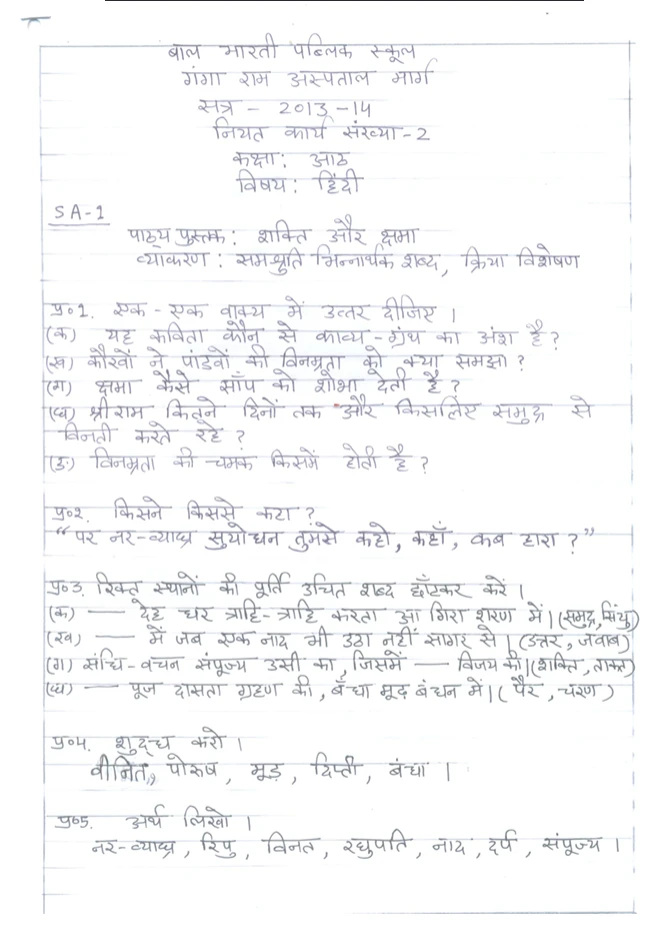 बाल भारती पब्लिक स्कूल
गंगा राम अस्पताल मार्ग
सत्र - 2013-14
नियत कार्य संख्या-2
कक्षा: आठ
विषय: हिंदी
SA-1
पाठ्य पुस्तक: शक्ति और क्षमा
व्याकरण : समश्रुति भिन्नार्थक शब्द, क्रिया विशेषण
प्र॰1. एक-एक वाक्य में उत्तर दीजिए।
(क) यह कविता कौन से काव्य-ग्रंथ का अंश है?
(ख) कौरवों ने पांडवों की विनम्रता को क्या समझा?
(ग) क्षमा कैसे साँप को शोभा देती है?
(घ) श्रीराम कितने दिनों तक और किसलिए समुद्र से
विनती करते रहे?
(ङ) विनम्रता की चमक किसमें होती है?
प्र॰२. किसने किससे कहा?
“पर नर-व्याघ्र सुयोधन तुमसे कहो, कहाँ, कब हारा?”
प्र॰3. रिक्त स्थानों की पूर्ति उचित शब्द छाँटकर करें।
(क) — देह धर त्राहि-त्राहि करता आ गिरा शरण में।(समुद्र, सिंधु)
(ख) — में जब एक नाद भी उठा नहीं सागर से।(उत्तर, जवाब)
(ग) संधि-वचन संपूज्य उसी का, जिसमें — विजय की।(शक्ति, ताकत)
(घ) — पूज दासता ग्रहण की, बँधा मूढ़ बंधन में।(पैर, चरण)
प्र॰4. शुद्ध करो।
वीनित, पोरुष, मूड़, दिप्ती, बंधा।
प्र॰5. अर्थ लिखो।
नर-व्याघ्र, रिपु, विनत, रघुपति, नाद, दर्प, संपूज्य।